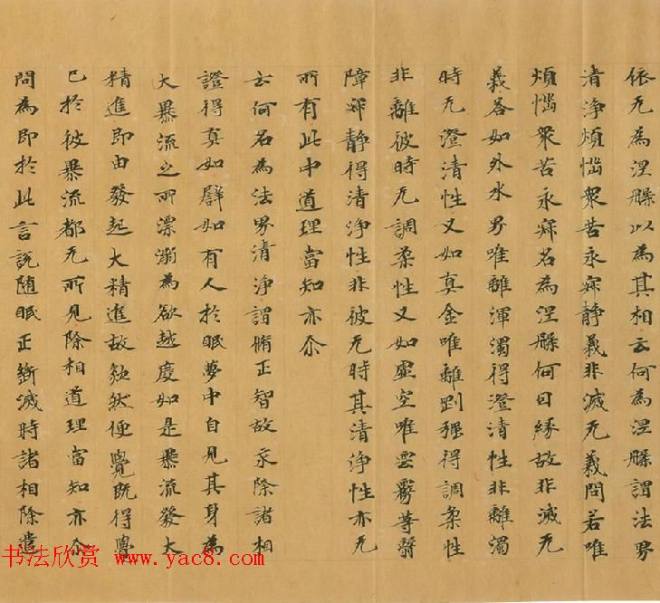 依无為涅槃以為其相云何為涅槃謂法界
清浄煩惱衆苦永寂静義非滅无義問若唯
煩惱衆苦永寂名為涅槃何因緣故非滅无
義答如外水界唯離渾濁得澄清性非離濁
時无澄清性又如真金唯離剛强得調柔性
非離彼時无調柔性又如虚空唯雲霧等翳
障寂静得清浄性非彼无時其清浄性亦无
所有此中道理當知亦尒
云何名為法界清浄謂脩正智故永除諸相
證得真如譬如有人於眠夢中自見其身為
大暴流之所漂溺為欲越度如是暴流發大
精進即由發起大精進故欻然便覺既得覺
已於彼暴流都无所見除相道理當知亦尒
問為即於此言説随眠正斷滅時諸相除遣
书法欣赏
www.yac8.com